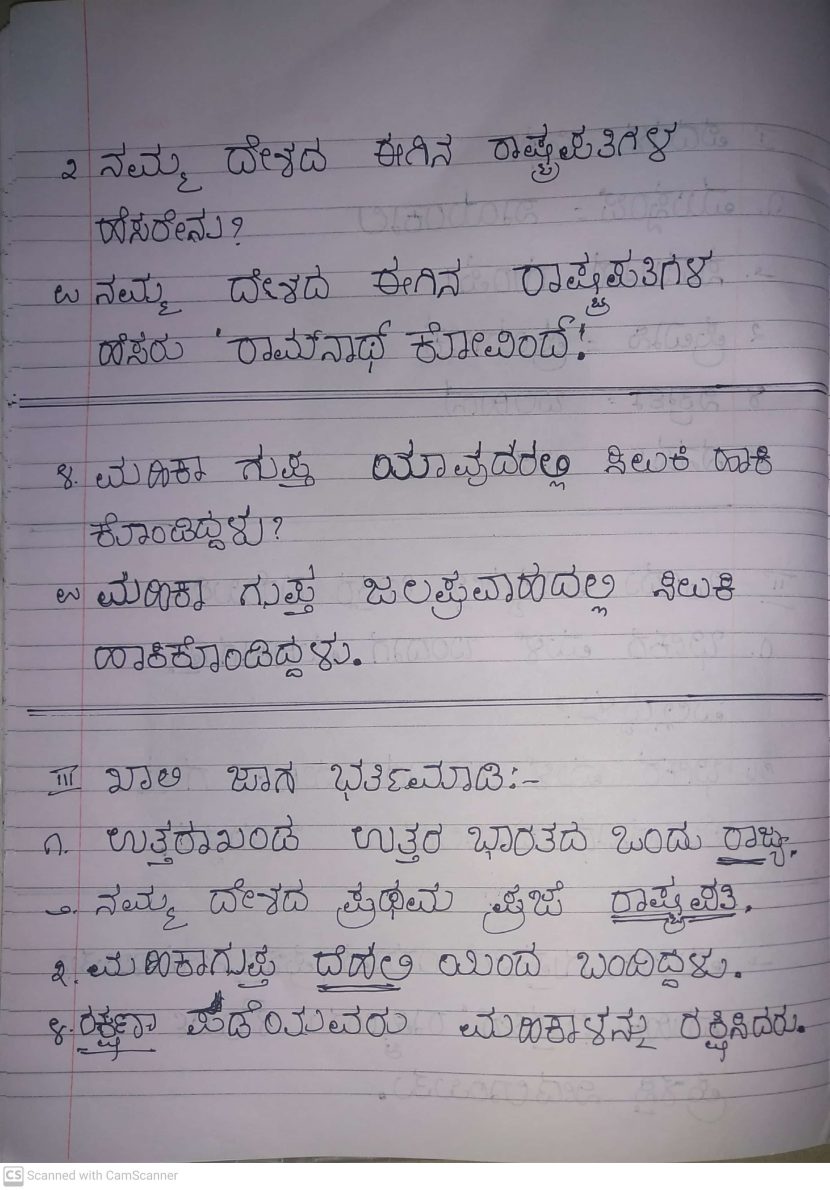 ೩ ನಮ್ಮ ದೇಶದ ಈಗಿನ ರಾಷ್ಟ್ರಪತಿಗಳ
ಹೆಸರೇನು?
ಉ ನಮ್ಮ ದೇಶದ ಈಗಿನ ರಾಷ್ಟ್ರಪತಿಗಳ
ಹೆಸರು 'ರಾಮ್‌ನಾಥ್ ಕೋವಿಂದ್'.
೪. ಮಹಿಕಾ ಗುಪ್ತ ಯಾವುದರಲ್ಲಿ ಸಿಲುಕಿ ಹಾಕಿ
ಕೊಂಡಿದ್ದಳು?
ಉ ಮಹಿಕಾ ಗುಪ್ತ ಜಲಪ್ರವಾಹದಲ್ಲಿ ಸಿಲುಕಿ
ಹಾಕಿಕೊಂಡಿದ್ದಳು.
III ಖಾಲಿ ಜಾಗ ಭರ್ತಿಮಾಡಿ:-
೧. ಉತ್ತರಾಖಂಡ ಉತ್ತರ ಭಾರತದ ಒಂದು ರಾಜ್ಯ.
೨. ನಮ್ಮ ದೇಶದ ಪ್ರಥಮ ಪ್ರಜೆ ರಾಷ್ಟ್ರಪತಿ.
೩. ಮಹಿಕಾಗುಪ್ತ ದೆಹಲಿ ಯಿಂದ ಬಂದಿದ್ದಳು.
೪. ರಕ್ಷಣಾ ಪಡೆಯವರು ಮಹಿಕಾಳನ್ನು ರಕ್ಷಿಸಿದರು.
CS Scanned with CamScanner